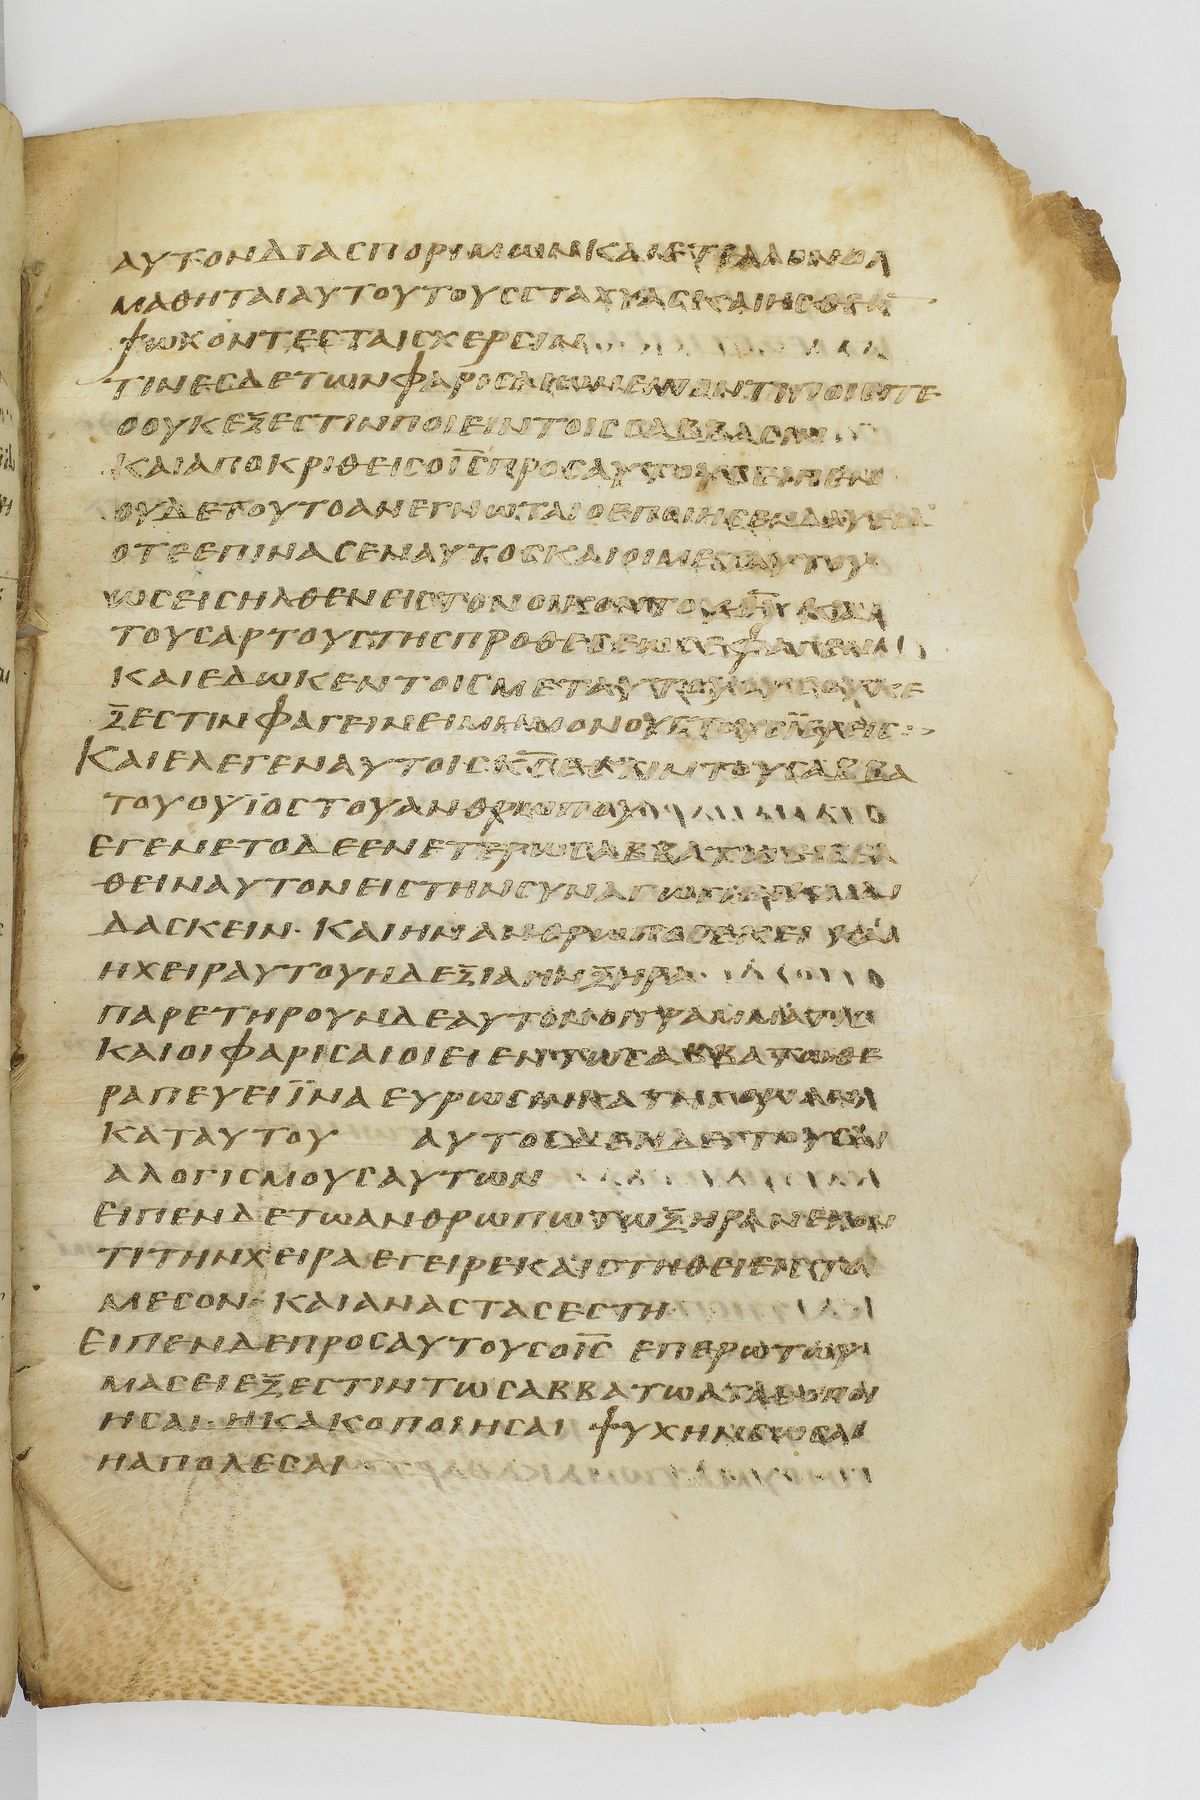 ΑΥΤΟΝΔΙΑΣΠΟΡΙΜΩΝΚΑΙΕΤΙΛΛΟΝΟΙ
ΜΑΘΗΤΑΙΑΥΤΟΥΤΟΥΣΣΤΑΧΥΑΣΚΑΙΗΣΘΙΟΝ
ΨΩΧΟΝΤΕΣΤΑΙΣΧΕΡΣΙΝ
ΤΙΝΕΣΔΕΤΩΝΦΑΡΙΣΑΙΩΝΕΙΠΟΝΤΙΠΟΙΕΙΤΕ
ΟΟΥΚΕΞΕΣΤΙΝΠΟΙΕΙΝΤΟΙΣΣΑΒΒΑΣΙΝ
ΚΑΙΑΠΟΚΡΙΘΕΙΣΟΙΣΠΡΟΣΑΥΤΟΥΣΕΙΠΕΝ
ΟΥΔΕΤΟΥΤΟΑΝΕΓΝΩΤΑΙΟΕΠΟΙΗΣΕΝΔΑΥΕΙΔ
ΟΤΕΕΠΙΝΑΣΕΝΑΥΤΟΣΚΑΙΟΙΜΕΤΑΥΤΟΥ
ΩΣΕΙΣΗΛΘΕΝΕΙΣΤΟΝΟΙΚΟΝΤΟΥΘΥΚΑΙ
ΤΟΥΣΑΡΤΟΥΣΤΗΣΠΡΟΘΕΣΕΩΣΕΦΑΓΕΝ
ΚΑΙΕΔΩΚΕΝΤΟΙΣΜΕΤΑΥΤΟΥΟΥΣΟΥΚΕ
ΞΕΣΤΙΝΦΑΓΕΙΝΕΙΜΗΜΟΝΟΥΣΤΟΥΣΙΕΡΕΙΣ
ΚΑΙΕΛΕΓΕΝΑΥΤΟΙΣΚΣΕΣΤΙΝΤΟΥΣΑΒΒΑ
ΤΟΥΟΥΙΟΣΤΟΥΑΝΘΡΩΠΟΥ
ΕΓΕΝΕΤΟΔΕΕΝΕΤΕΡΩΣΑΒΒΑΤΩΕΙΣΕΛ
ΘΕΙΝΑΥΤΟΝΕΙΣΤΗΝΣΥΝΑΓΩΓΗΝΚΑΙΔΙ
ΔΑΣΚΕΙΝ·ΚΑΙΗΝΑΝΘΡΩΠΟΣΕΚΕΙΚΑΙ
ΗΧΕΙΡΑΥΤΟΥΗΔΕΞΙΑΗΝΞΗΡΑ
ΠΑΡΕΤΗΡΟΥΝΔΕΑΥΤΟΝΟΙΓΡΑΜΜΑΤΕΙΣ
ΚΑΙΟΙΦΑΡΙΣΑΙΟΙΕΙΕΝΤΩΣΑΒΒΑΤΩΘΕ
ΡΑΠΕΥΕΙΙΝΑΕΥΡΩΣΙΝΚΑΤΗΓΟΡΙΑΝ
ΚΑΤΑΥΤΟΥ ΑΥΤΟΣΔΕΗΔΕΙΤΟΥΣΔΙ
ΑΛΟΓΙΣΜΟΥΣΑΥΤΩΝ
ΕΙΠΕΝΔΕΤΩΑΝΘΡΩΠΩΤΩΞΗΡΑΝΕΧΟΝ
ΤΙΤΗΝΧΕΙΡΑΕΓΕΙΡΕΚΑΙΣΤΗΘΕΙΕΙΣΤΟ
ΜΕΣΟΝ·ΚΑΙΑΝΑΣΤΑΣΕΣΤΗ
ΕΙΠΕΝΔΕΠΡΟΣΑΥΤΟΥΣΟΙΣ ΕΠΕΡΩΤΩΥ
ΜΑΣΕΙΕΞΕΣΤΙΝΤΩΣΑΒΒΑΤΩΑΓΑΘΟΠΟΙ
ΗΣΑΙ·ΗΚΑΚΟΠΟΙΗΣΑΙ ΨΥΧΗΝΣΩΣΑΙ
ΗΑΠΟΛΕΣΑΙ